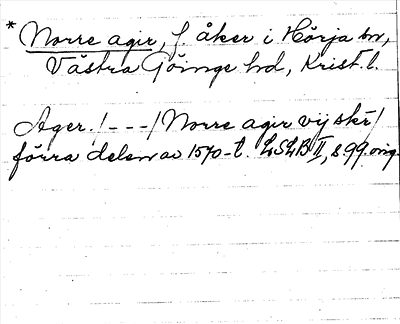 * Norre agir, f. åker i Hörja sn,
Västra Göinge hd, Krist. l.
Ager. / - - - / Norre agir vij skr /
förra delen av 1570-t. LSLB II, s. 99. orig.